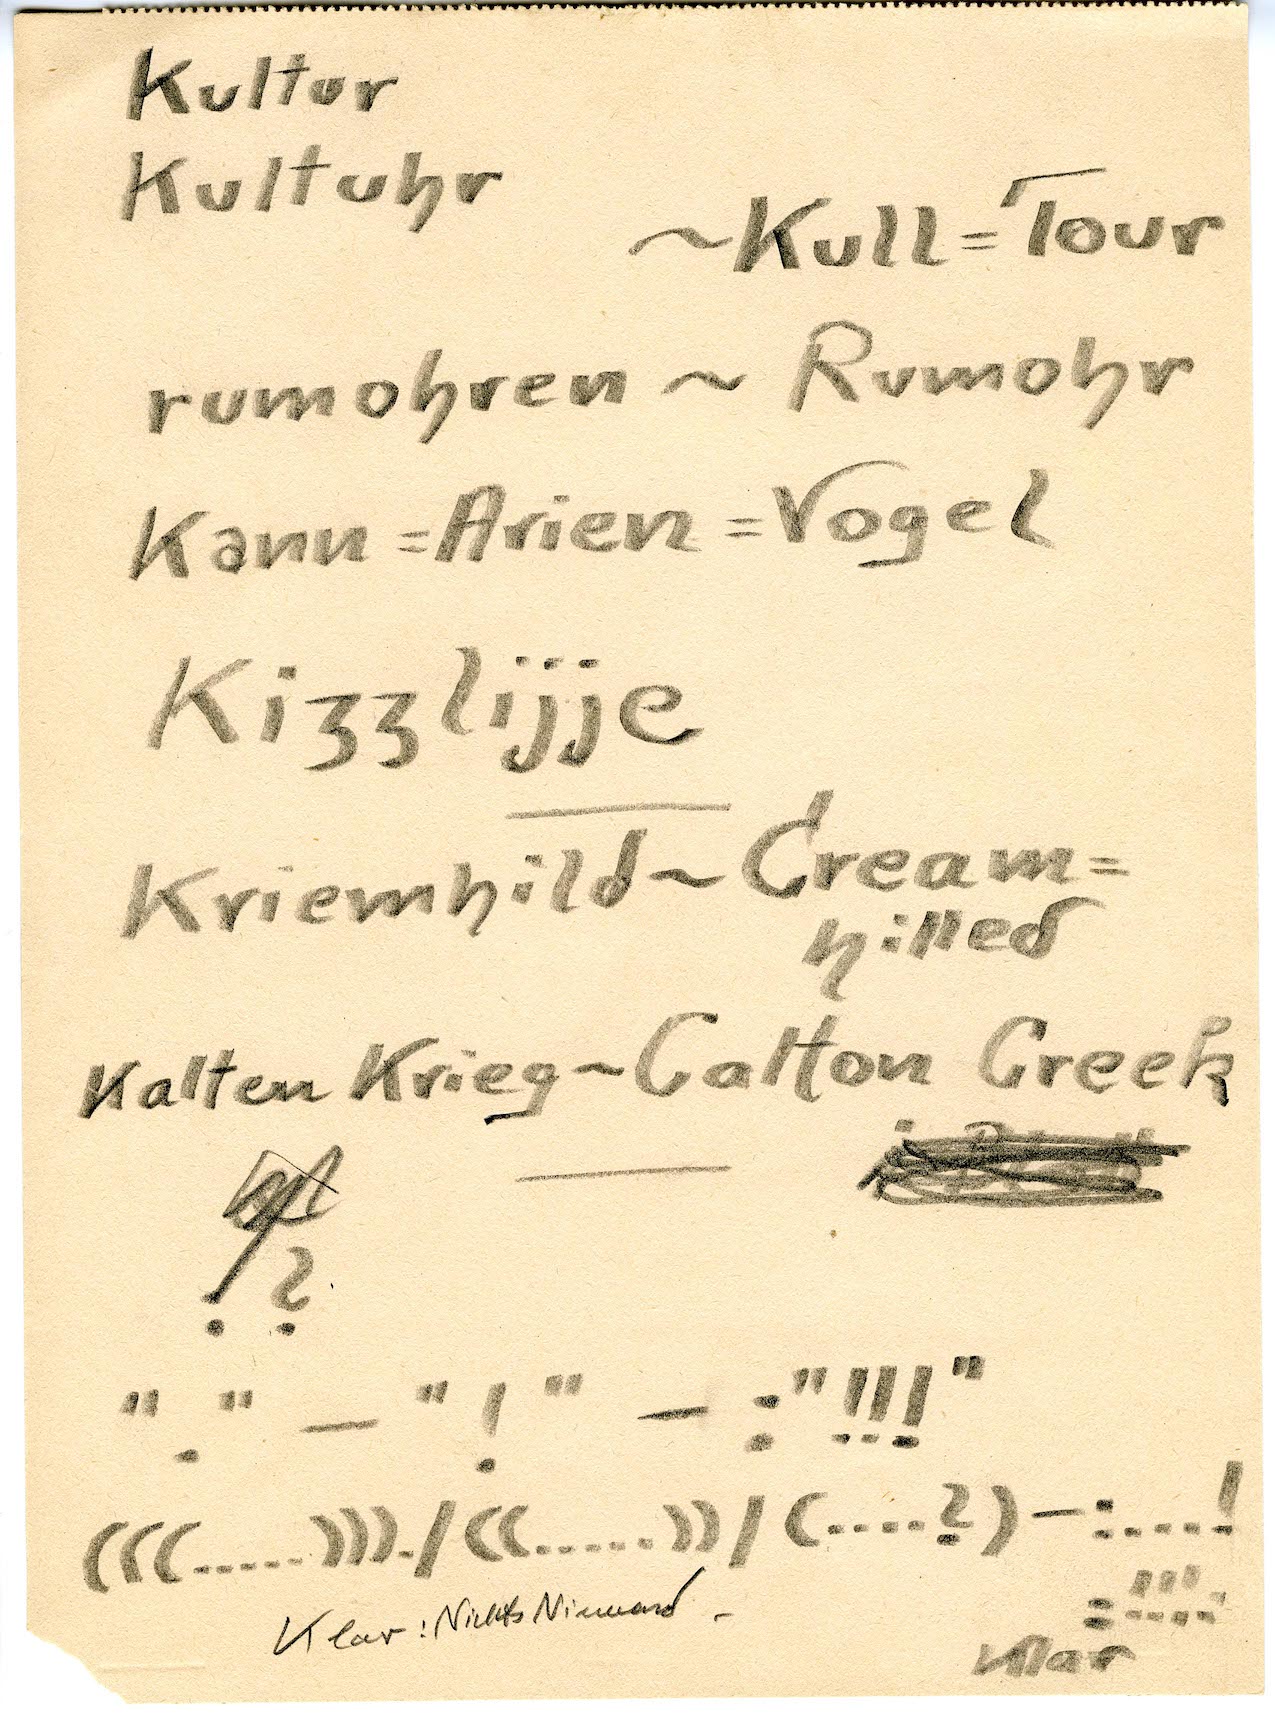 Kultur
Kultuhr
~Kull=Tour
rumohren ~ Rumohr
Kann=Arien=Vogel
Kizzlijje
Kriemhild~Cream=
hilled
Kalten Krieg~Calton Creek
! ?
" . " — " ! " — :"!!!"
(((.....)))./((......))/(....?)—:....!
=!!!!
Klar: Nichts Niemand.
Klar